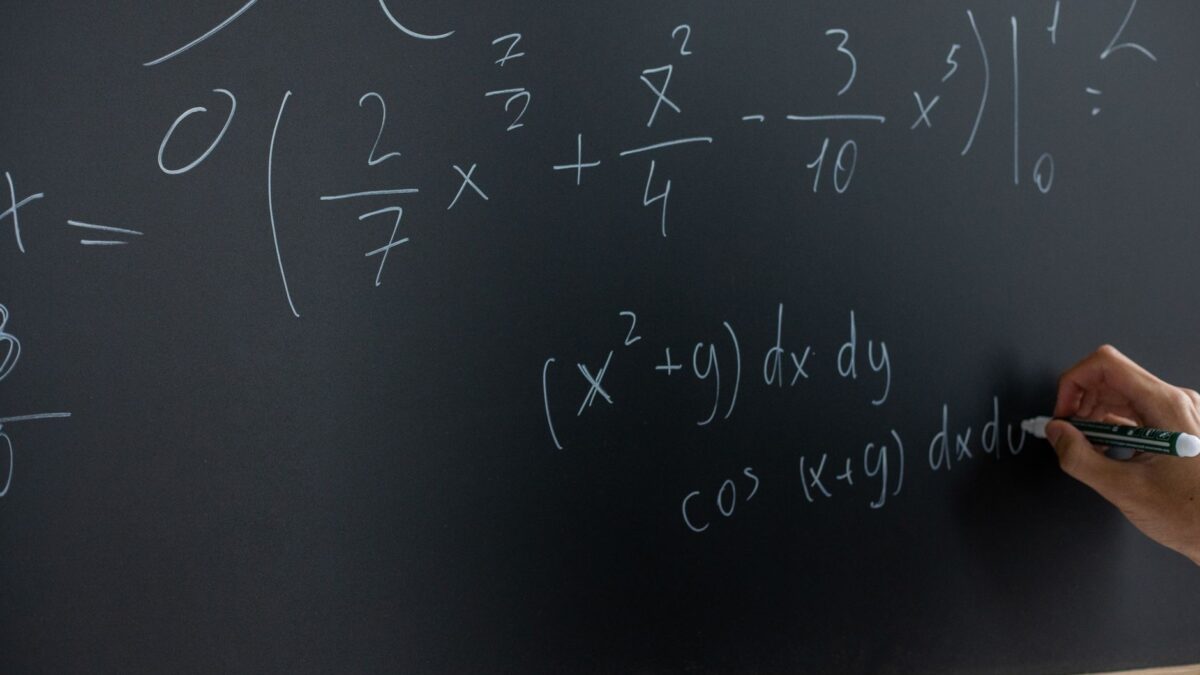 x = 0 ( 2/7 x^7/2 + x^2/4 - 3/10 x^5 ) |_0^1 =
(x^2 + y) dx dy
cos (x+y) dx dy